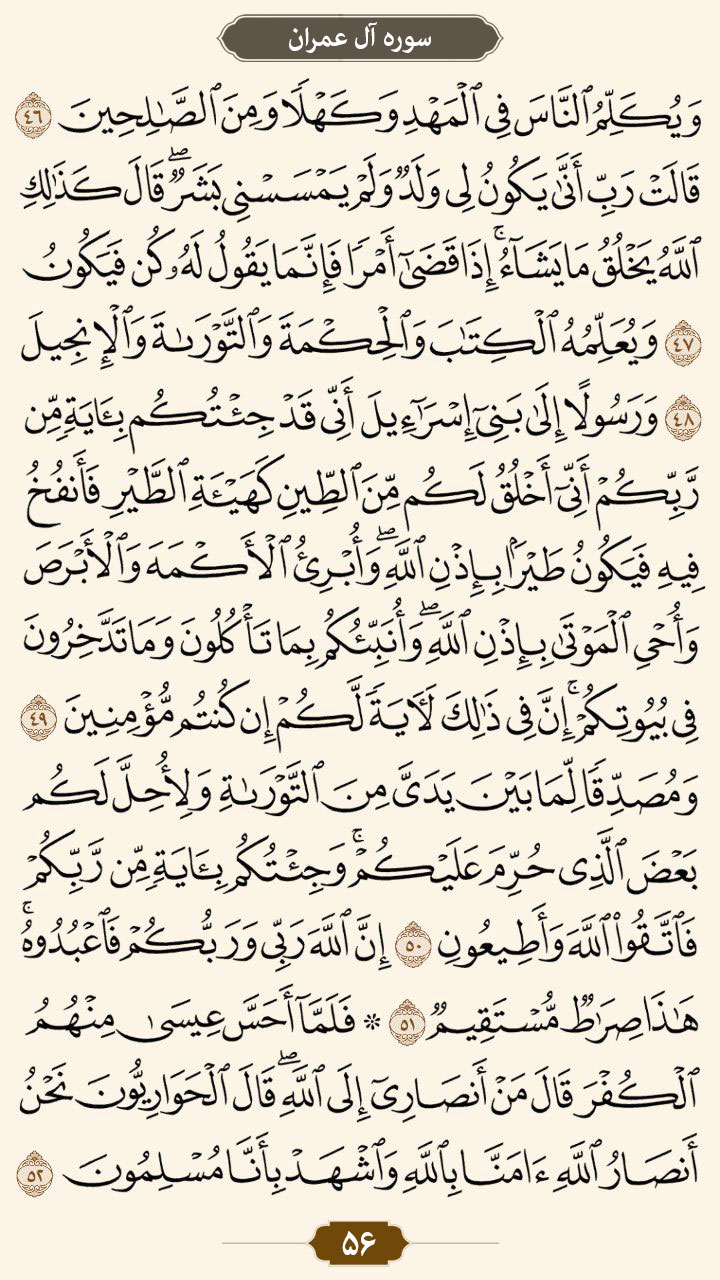 سوره آل عمران
وَيُكَلِّمُ ٱلنَّاسَ فِى ٱلْمَهْدِ وَكَهْلًا وَمِنَ ٱلصَّٰلِحِينَ ٤٦
قَالَتْ رَبِّ أَنَّىٰ يَكُونُ لِى وَلَدٌ وَلَمْ يَمْسَسْنِى بَشَرٌ ۖ قَالَ كَذَٰلِكِ
ٱللَّهُ يَخْلُقُ مَا يَشَآءُ ۚ إِذَا قَضَىٰٓ أَمْرًا فَإِنَّمَا يَقُولُ لَهُۥ كُن فَيَكُونُ
٤٧ وَيُعَلِّمُهُ ٱلْكِتَٰبَ وَٱلْحِكْمَةَ وَٱلتَّوْرَىٰةَ وَٱلْإِنجِيلَ
٤٨ وَرَسُولًا إِلَىٰ بَنِىٓ إِسْرَٰٓءِيلَ أَنِّى قَدْ جِئْتُكُم بِـَٔايَةٍ مِّن
رَّبِّكُمْ أَنِّىٓ أَخْلُقُ لَكُم مِّنَ ٱلطِّينِ كَهَيْـَٔةِ ٱلطَّيْرِ فَأَنفُخُ
فِيهِ فَيَكُونُ طَيْرًۢا بِإِذْنِ ٱللَّهِ ۖ وَأُبْرِئُ ٱلْأَكْمَهَ وَٱلْأَبْرَصَ
وَأُحْىِ ٱلْمَوْتَىٰ بِإِذْنِ ٱللَّهِ ۖ وَأُنَبِّئُكُم بِمَا تَأْكُلُونَ وَمَا تَدَّخِرُونَ
فِى بُيُوتِكُمْ ۚ إِنَّ فِى ذَٰلِكَ لَـَٔايَةً لَّكُمْ إِن كُنتُم مُّؤْمِنِينَ ٤٩
وَمُصَدِّقًا لِّمَا بَيْنَ يَدَىَّ مِنَ ٱلتَّوْرَىٰةِ وَلِأُحِلَّ لَكُم
بَعْضَ ٱلَّذِى حُرِّمَ عَلَيْكُمْ ۚ وَجِئْتُكُم بِـَٔايَةٍ مِّن رَّبِّكُمْ
فَٱتَّقُوا۟ ٱللَّهَ وَأَطِيعُونِ ٥٠ إِنَّ ٱللَّهَ رَبِّى وَرَبُّكُمْ فَٱعْبُدُوهُ ۚ
هَٰذَا صِرَٰطٌ مُّسْتَقِيمٌ ٥١ * فَلَمَّآ أَحَسَّ عِيسَىٰ مِنْهُمُ
ٱلْكُفْرَ قَالَ مَنْ أَنصَارِىٓ إِلَى ٱللَّهِ ۖ قَالَ ٱلْحَوَارِيُّونَ نَحْنُ
أَنصَارُ ٱللَّهِ ءَامَنَّا بِٱللَّهِ وَٱشْهَدْ بِأَنَّا مُسْلِمُونَ ٥٢
۵۶